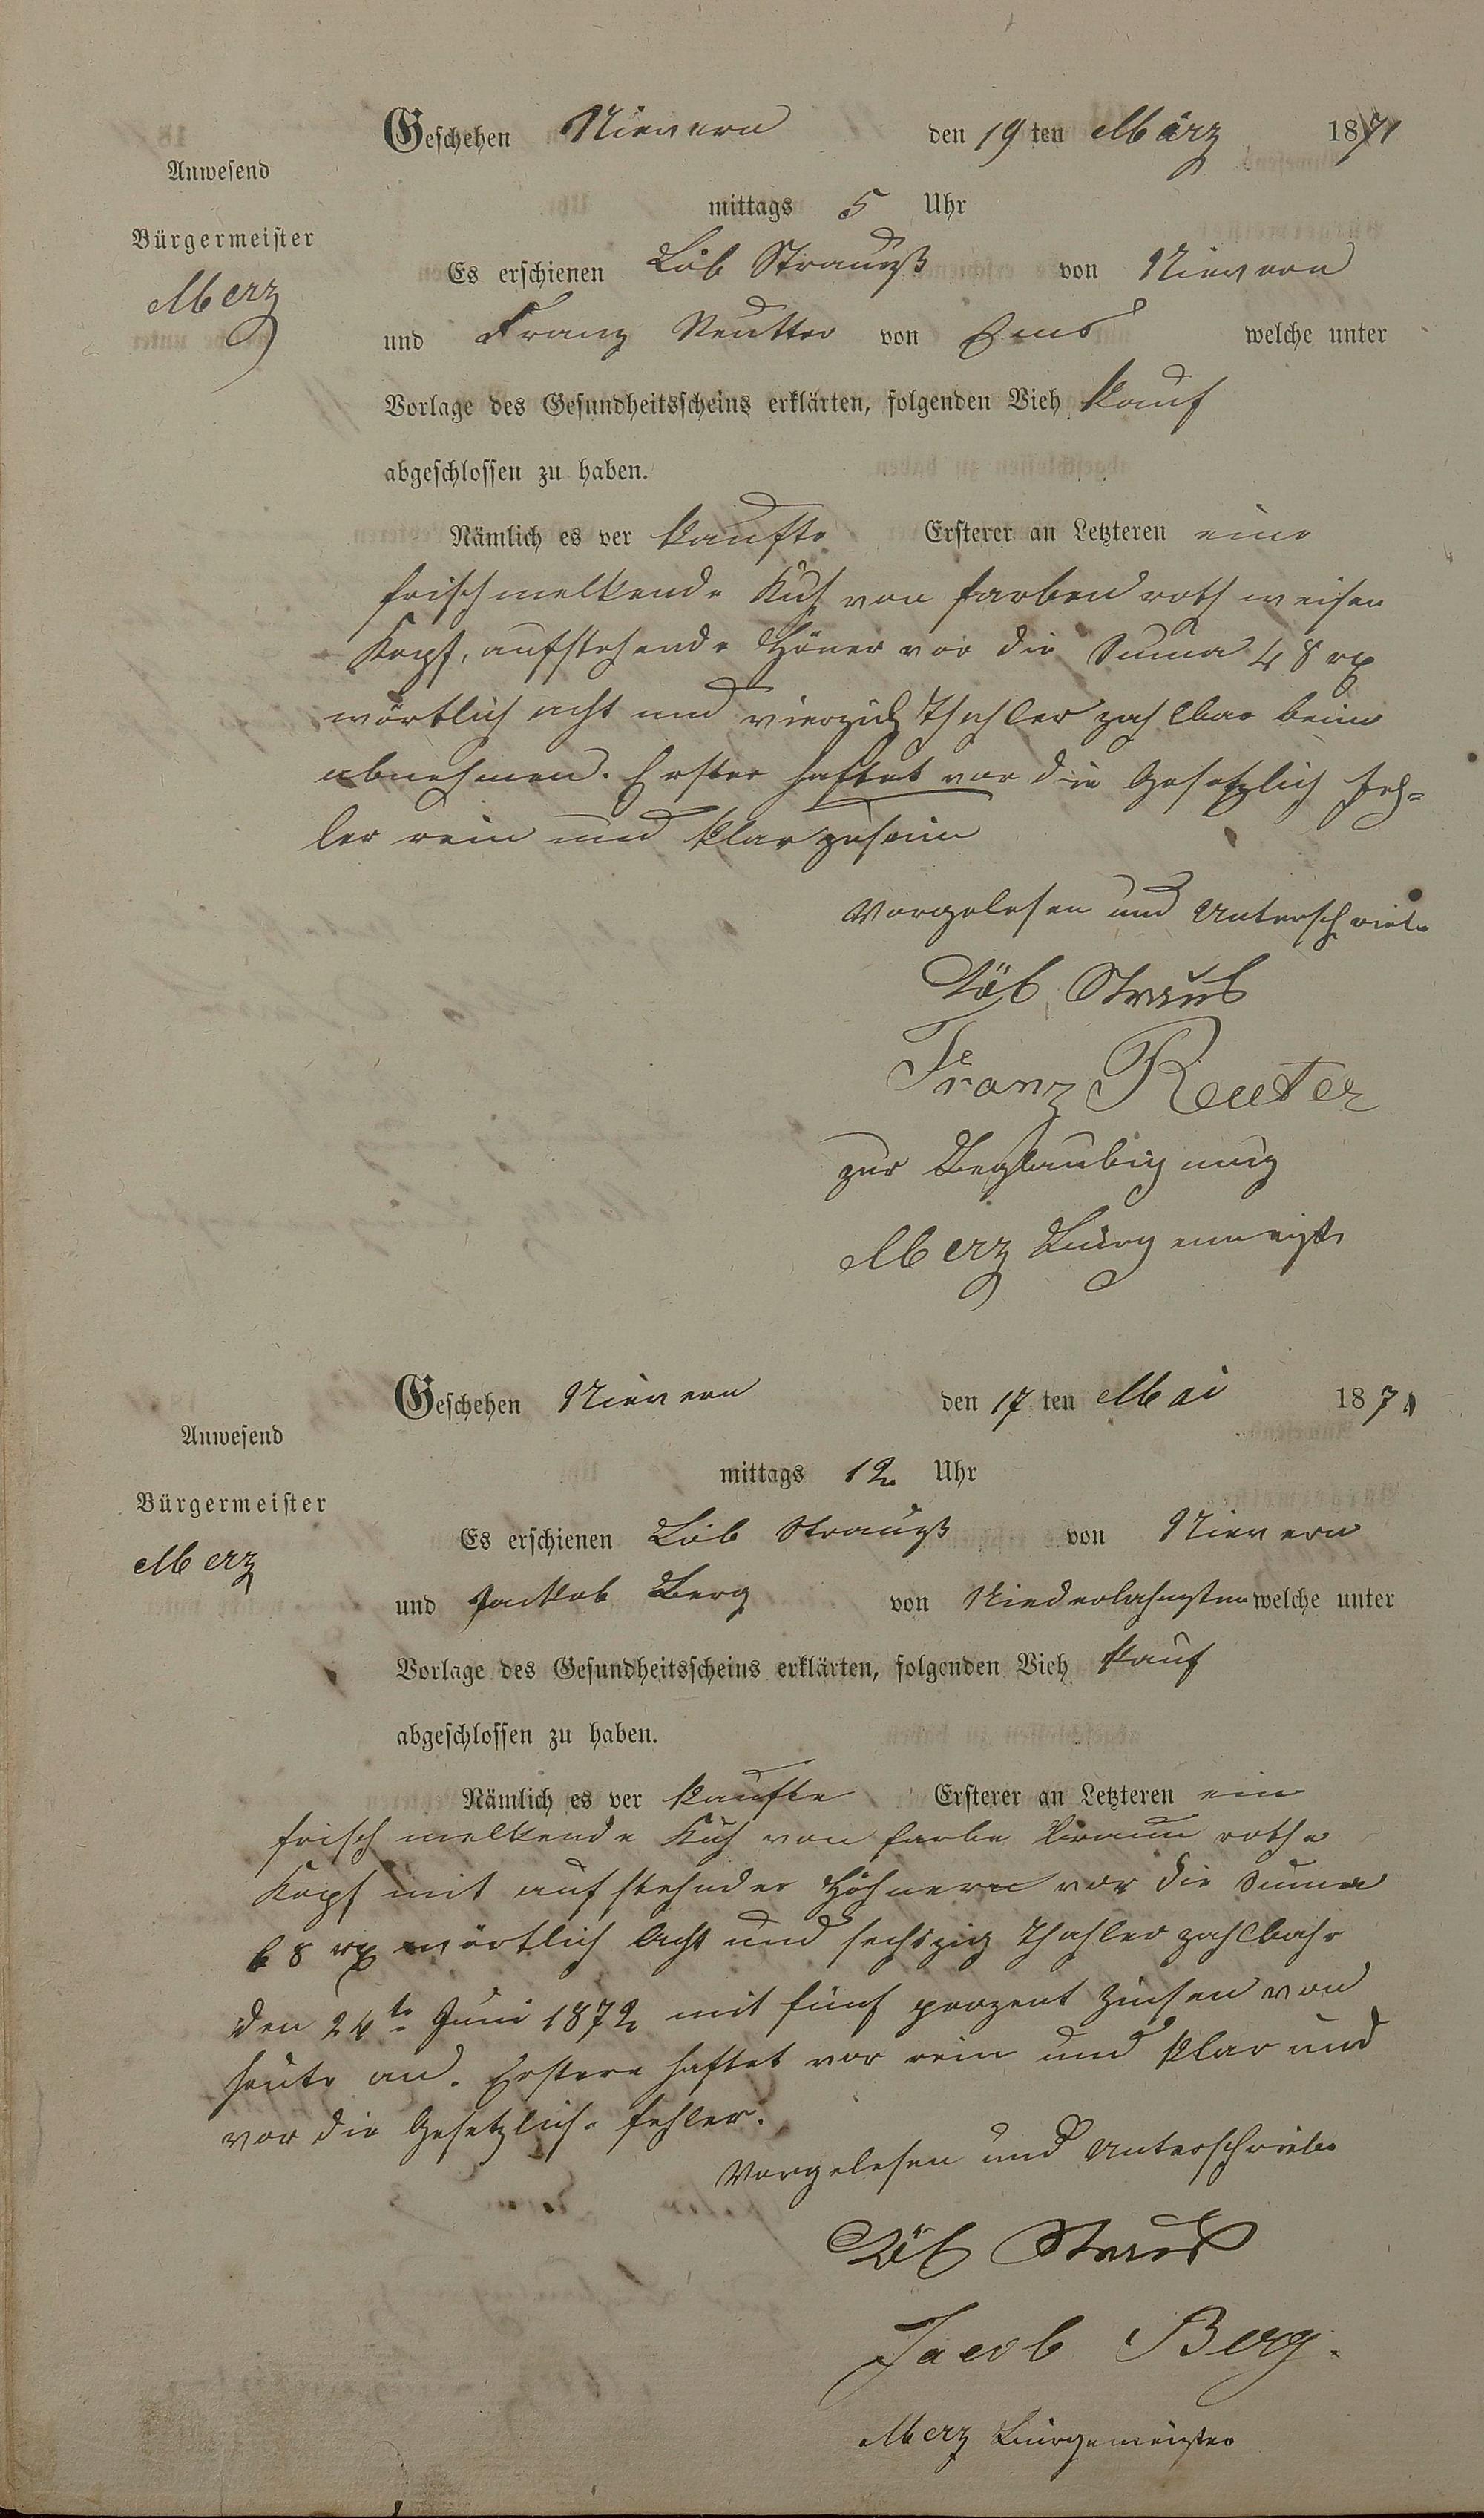 Geschehen Nievern den 19 ten März 1871
Anwesend
mittags 5 Uhr
Bürgermeister
Merz
Es erschienen Löb Strauß von Nievern
und Franz Reutter von Ems welche unter
Vorlage des Gesundheitsscheins erklärten, folgenden Vieh kauf
abgeschlossen zu haben.
Nämlich es ver kaufte Ersterer an Letzteren eine
frisch melkende Kuh von farben roth weisen
Kopf, aufstehende Höner vor die Suma 48 rx
wörtlich acht und vierzich Thahler zahlbar beim
abnehmen. Erster haftet vor die Gesetzlich feh=
ler rein und klar zu sein
Vorgelesen und Unterschrieben
Löb Straus
Franz Reuter
zur Beglaubigung
Merz Bürgermeister
Geschehen Nievern den 17 ten Mai 1871
Anwesend
mittags 12 Uhr
Bürgermeister
Merz
Es erschienen Löb Strauß von Nievern
und Jackob Berg von Niederlahnstein welche unter
Vorlage des Gesundheitsscheins erklärten, folgenden Vieh kauf
abgeschlossen zu haben.
Nämlich es ver kaufte Ersterer an Letzteren eine
frisch melkende Kuh von farbe braun rothe
Kopf mit aufstehnder Höhnern vor die Suma
68 rx wörtlich Acht und sechszig Thahler zahlbahr
den 24te Juni 1872 mit fünf prozent Zinsen von
heute an. Erstere haftet vor rein und klar und
vor die Gesetzliche fehler.
Vorgelesen und Unterschrieben
Löb Straus
Jacob Berg.
Merz Bürgemeister